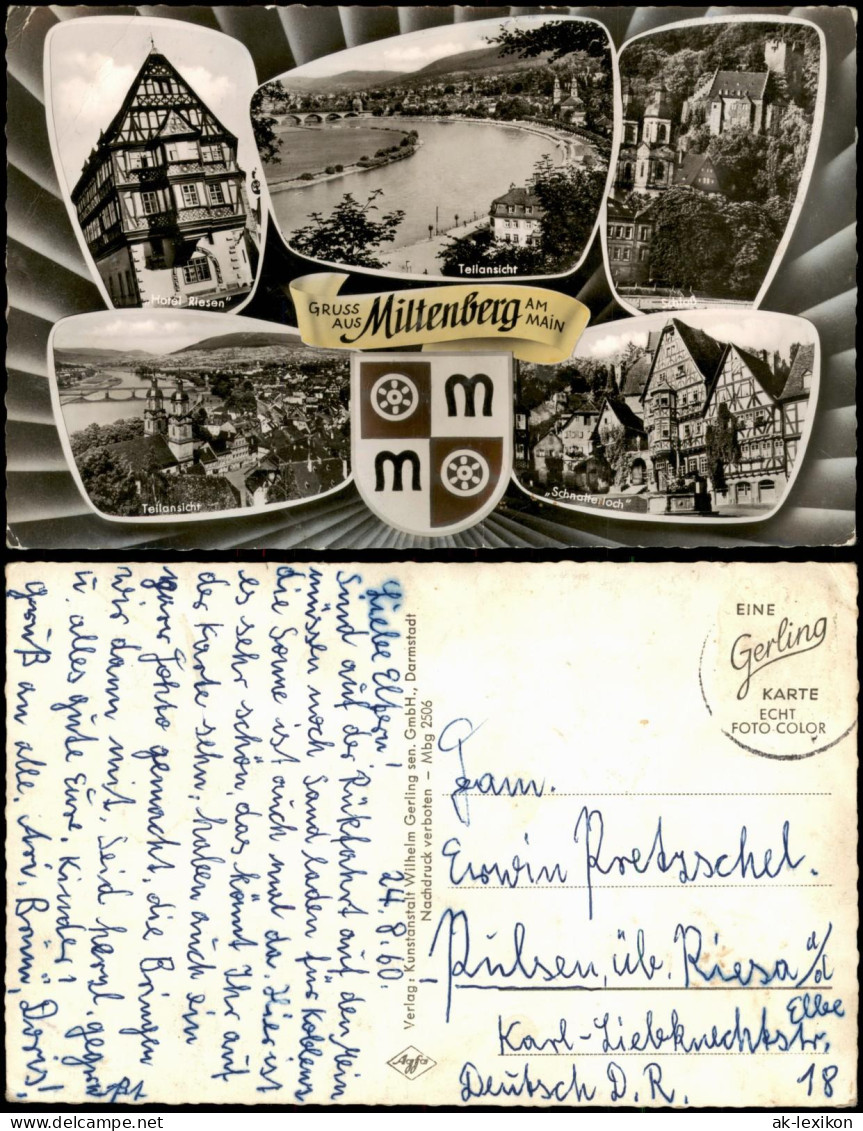 „Hotel Riesen"
Teilansicht
Schloß
GRUSS AUS Miltenberg AM MAIN
m
m
Teilansicht
„Schnatterloch"
24.8.60.
Liebe Eltern!
Sind auf der Rückfahrt auf den Mein
müssen noch Sand laden für Koblenz
die Sonne ist auch mal da. Hier ist
es sehr schön, das könnt Ihr auf
der Karte sehn, haben auch ein
paar Fohto gemacht, die Bringen
wir dann mit. Seid herzl. gegrüßt
u. alles gute Eure Kinder,
Gruß an alle. Doris!
Verlag: Kunstanstalt Wilhelm Gerling sen. GmbH., Darmstadt
Nachdruck verboten – Mbg 2506
Agfa
EINE
Gerling
KARTE
ECHT
FOTO-COLOR
Fam.
Erwin Pretzschel.
Pulsen, üb. Riesa a/d
Elbe
Karl-Liebknechtstr.
18
Deutsch D.R.
ak-lexikon